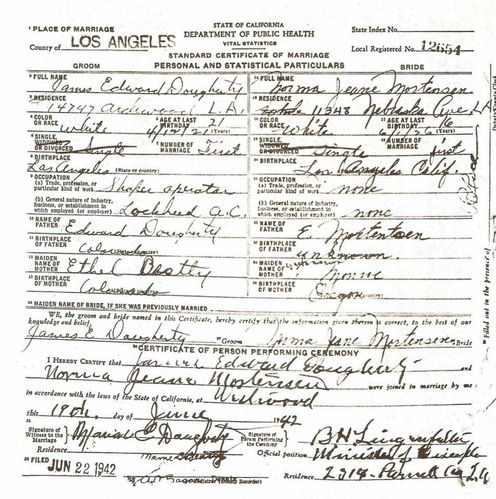 STATE OF CALIFORNIA
DEPARTMENT OF PUBLIC HEALTH
VITAL STATISTICS
STANDARD CERTIFICATE OF MARRIAGE
PLACE OF MARRIAGE
County of LOS ANGELES
State Index No.
Local Registered No. 12654
PERSONAL AND STATISTICAL PARTICULARS
GROOM BRIDE
FULL NAME James Edward Dougherty FULL NAME Norma Jeane Mortensen
RESIDENCE 14747 Archwood L.A. RESIDENCE 11348 Nebraska Ave L.A.
COLOR OR RACE White AGE AT LAST BIRTHDAY 21 4/12/21 (Years) COLOR OR RACE White AGE AT LAST BIRTHDAY 16 6/1/26 (Years)
SINGLE, WIDOWED OR DIVORCED Single NUMBER OF MARRIAGE First SINGLE, WIDOWED OR DIVORCED Single NUMBER OF MARRIAGE First
BIRTHPLACE Los Angeles (State or country) BIRTHPLACE Los Angeles Calif.
OCCUPATION
(a) Trade, profession, or particular kind of work Shaper operator none
(b) General nature of industry, business, or establishment in which employed (or employer) Lockheed A.C. none
NAME OF FATHER Edward Dougherty NAME OF FATHER E. Mortensen
BIRTHPLACE OF FATHER Colorado BIRTHPLACE OF FATHER unknown
MAIDEN NAME OF MOTHER Ethel MAIDEN NAME OF MOTHER Monroe
BIRTHPLACE OF MOTHER Colorado BIRTHPLACE OF MOTHER Oregon
MAIDEN NAME OF BRIDE, IF SHE WAS PREVIOUSLY MARRIED
WE, the groom and bride named in this Certificate, hereby certify that the information given therein is correct, to the best of our
knowledge and belief.
James E. Dougherty Groom Norma Jeane Mortensen Bride
CERTIFICATE OF PERSON PERFORMING CEREMONY
I HEREBY CERTIFY that James Edward Dougherty
and Norma Jeane Mortensen were joined in marriage by me
in accordance with the laws of the State of California, at Westwood
this 19th day of June 1942
Signature of Witness to the Marriage Marion E. Dougherty Signature of Person Performing the Ceremony B H Lingenfelter
Official position Minister
Residence 2318
FILED JUN 22 1942